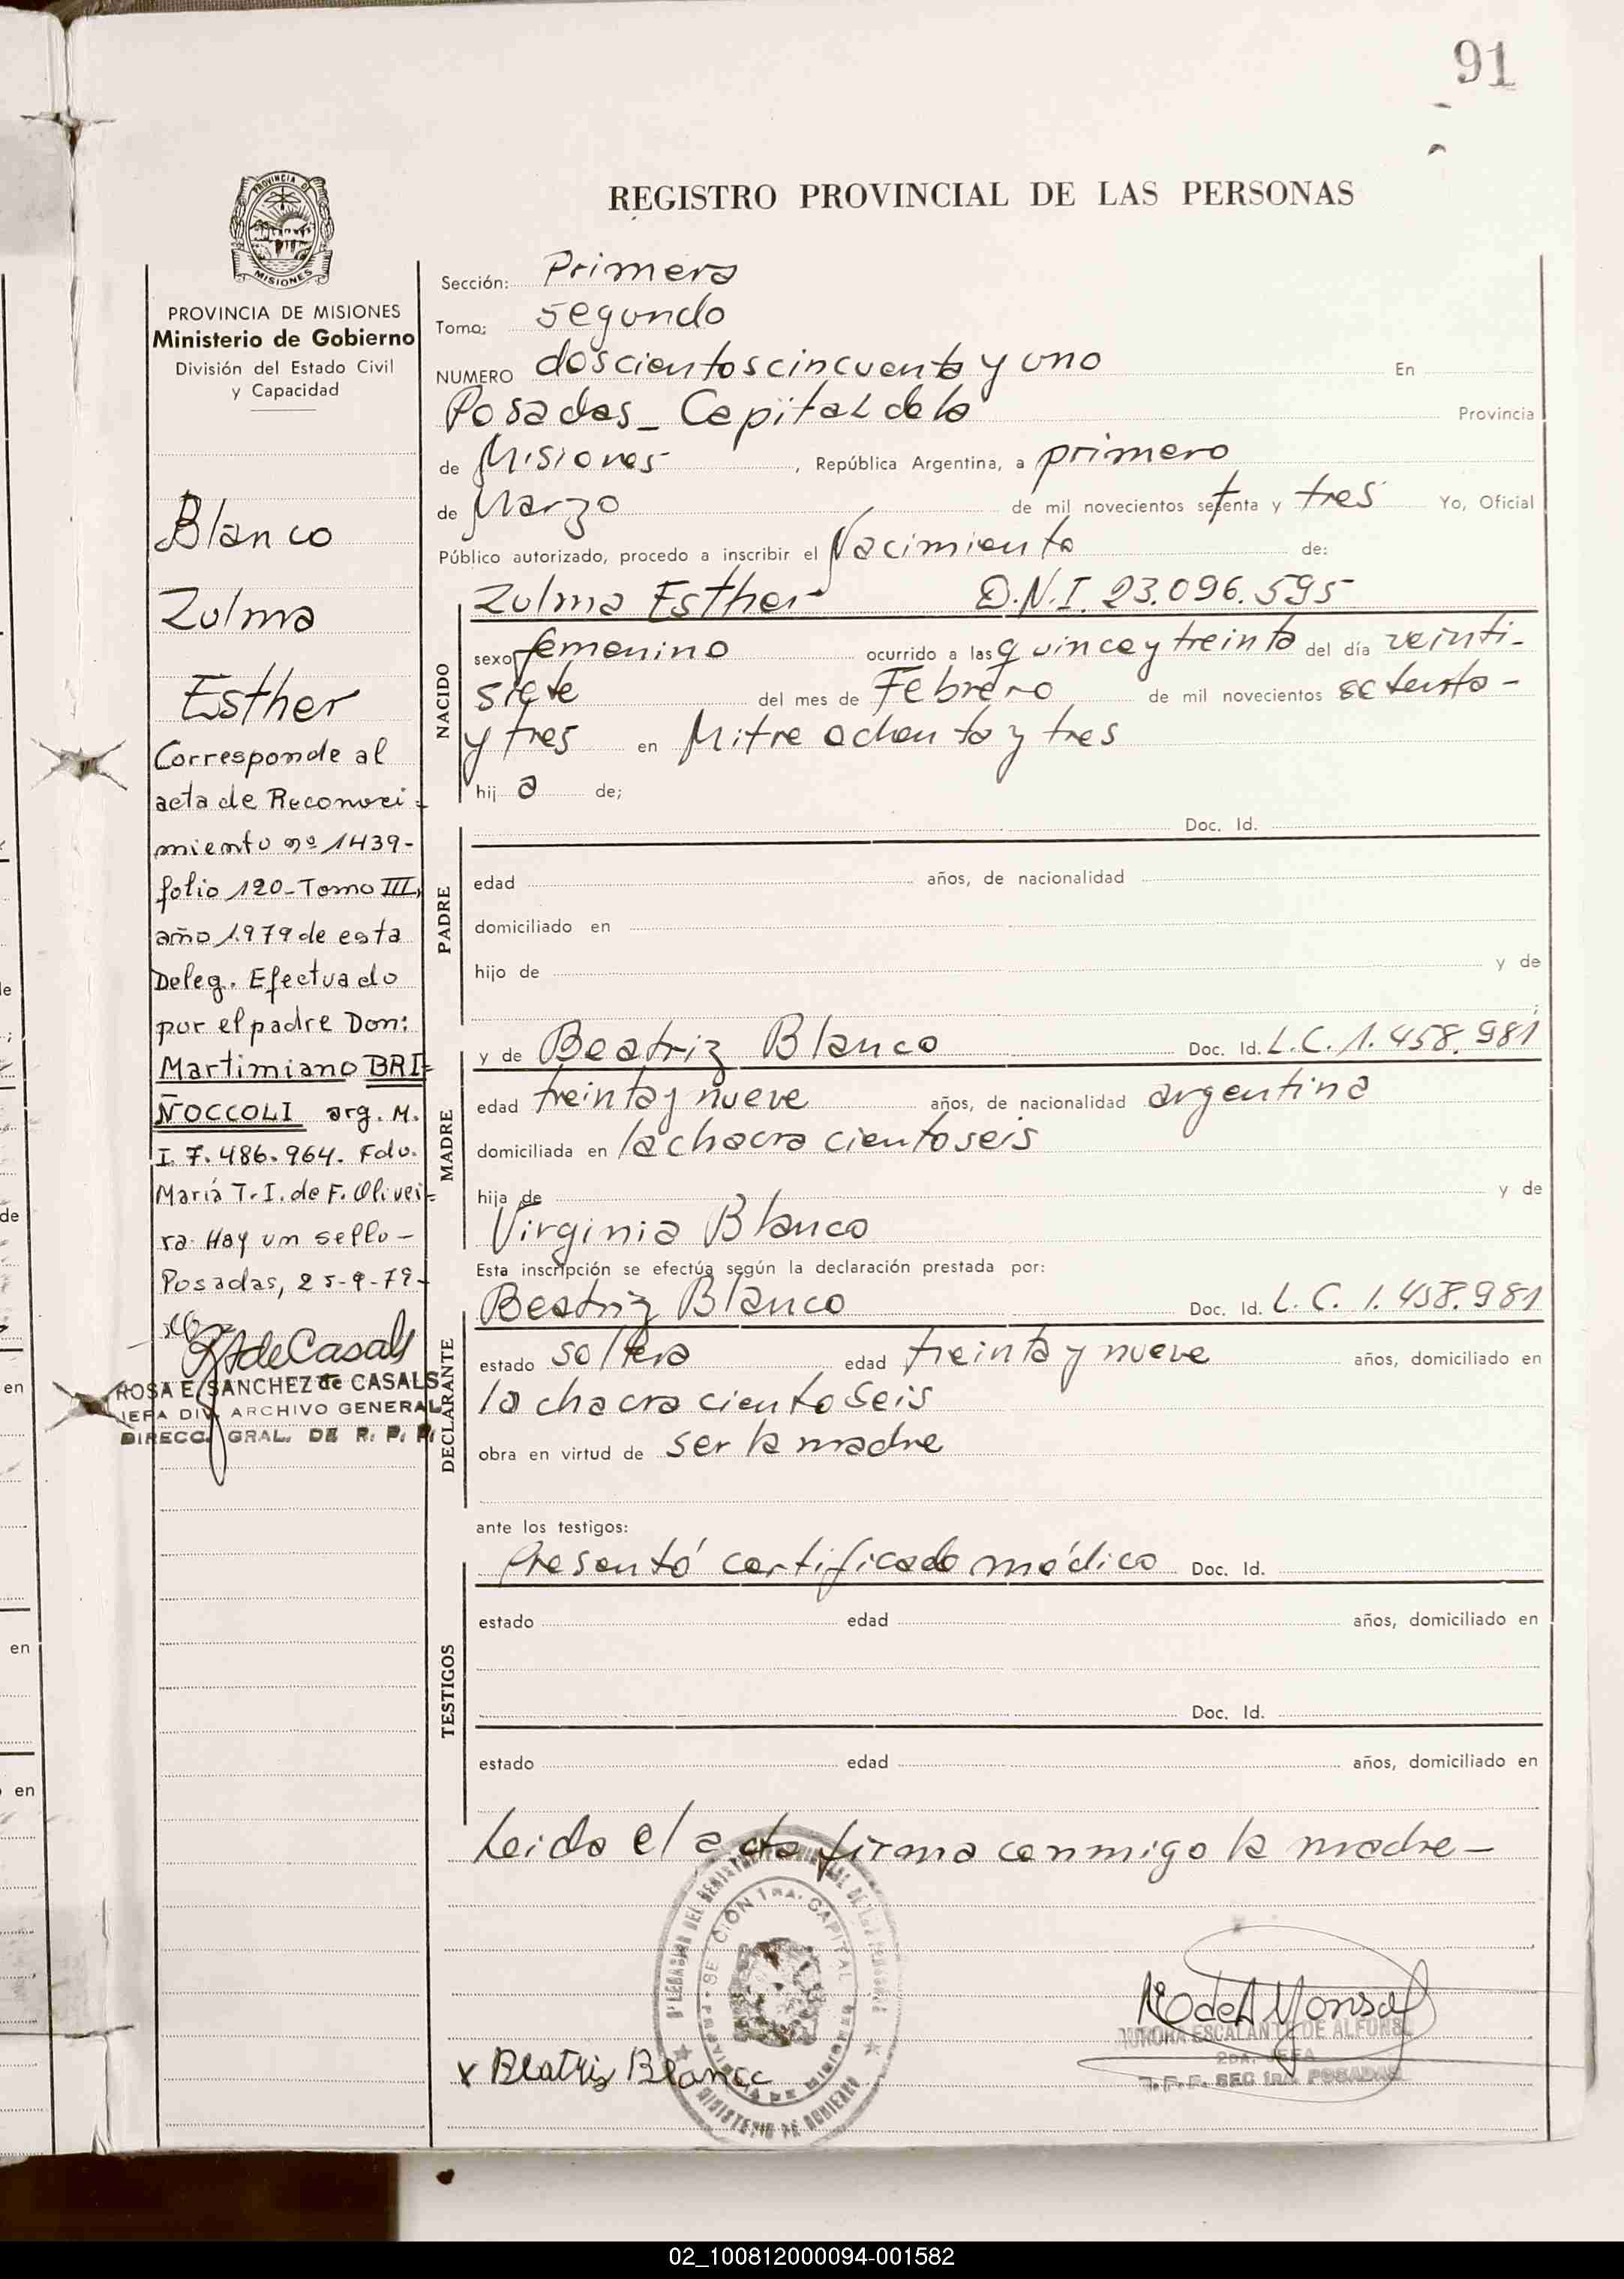 91
REGISTRO PROVINCIAL DE LAS PERSONAS
PROVINCIA DE MISIONES
Ministerio de Gobierno
División del Estado Civil
y Capacidad
Blanco
Zulma
Esther
Corresponde al
acta de Reconoci-
miento nº 1439-
folio 120-Tomo III,
año 1.979 de esta
Deleg. Efectuado
por el padre Don:
Martimiano BRI-
ÑOCCOLI arg. M.
I. 7.486.964. Fdo.
María T. I. de F. Olivei-
ra. Hay un sello-
Posadas, 25-9-79-
de Casals
ROSA E. SANCHEZ de CASALS
JEFA DIV. ARCHIVO GENERAL
DIRECC. GRAL. DE R. P. P.
Sección: Primera
Tomo: segundo
NUMERO doscientos cincuenta y uno En
Posadas_ Capital de la Provincia
de Misiones, República Argentina, a primero
de Marzo de mil novecientos setenta y tres Yo, Oficial
Público autorizado, procedo a inscribir el Nacimiento de:
NACIDO
Zulma Esther D.N.I. 23.096.595
sexo femenino ocurrido a las quince y treinta del día veinti-
siete del mes de Febrero de mil novecientos setenta-
y tres en Mitre ochenta y tres
hij a de;
PADRE
Doc. Id.
edad años, de nacionalidad
domiciliado en
hijo de y de
;
MADRE
y de Beatriz Blanco Doc. Id. L.C. 1.458.981
edad treinta y nueve años, de nacionalidad argentina
domiciliada en la chacra ciento seis
hija de y de
Virginia Blanco
Esta inscripción se efectúa según la declaración prestada por:
DECLARANTE
Beatriz Blanco Doc. Id. L.C. 1.458.981
estado soltera edad treinta y nueve años, domiciliado en
la chacra ciento seis
obra en virtud de ser la madre
ante los testigos:
TESTIGOS
Presentó certificado médico Doc. Id.
estado edad años, domiciliado en
Doc. Id.
estado edad años, domiciliado en
Leida el acta firma conmigo la madre-
SECCIÓN 1RA. CAPITAL
MINISTERIO DE GOBIERNO
x Beatriz Blanco
AURORA ESCALANTE DE ALFONSO
2DA. JEFA
SEC 1RA POSADAS
02_100812000094-001582